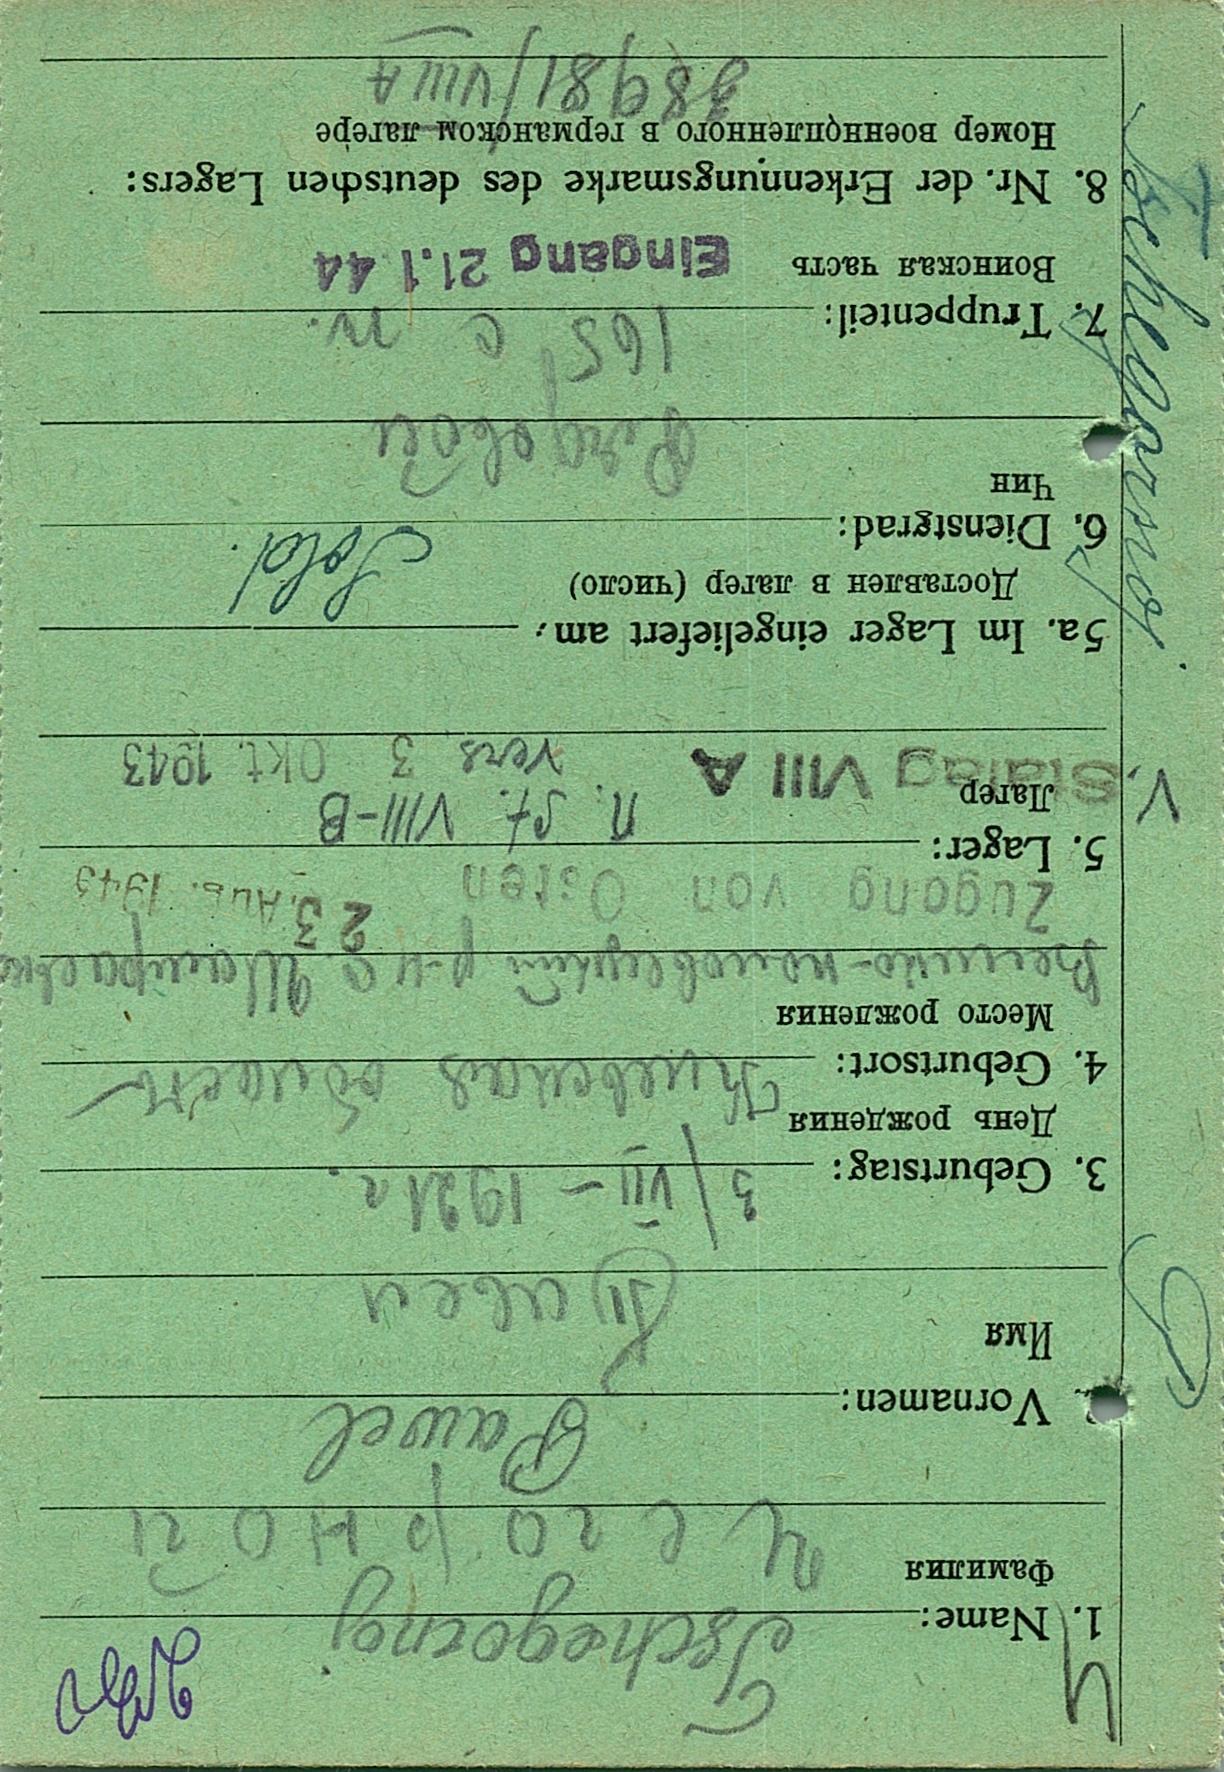 Ч
1. Name: Tschegornoj
Фамилия
Чегорной
Vornamen: Pawel
Имя
Павел
3. Geburtstag: 3/VII – 1921 г.
День рождения
4. Geburtsort: Киевская область
Место рождения
р-н с.
Zugang von Osten 23. Aug. 1943
5. Lager: n. St. VIII-B
Лагер
V. Stalag VIII A
vers 3 Okt. 1943
5a. Im Lager eingeliefert am:
Доставлен в лагер (число)
Sold.
6. Dienstgrad:
Чин
Рядовой
7. Truppenteil: 165 с п.
Воинская часть
Eingang 21.1 44
8. Nr. der Erkennungsmarke des deutschen Lagers:
Номер военнопленного в германском лагере
38981/VIII A